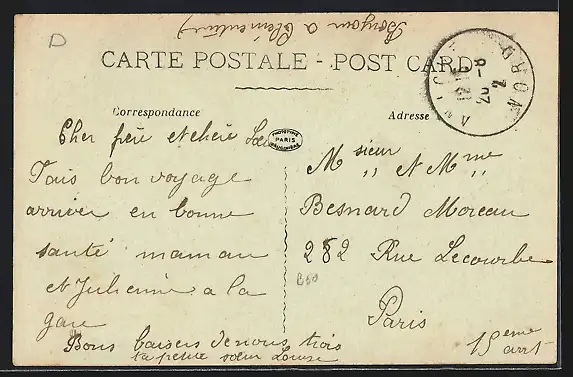 Bonjour a Clémentine
D
CARTE POSTALE - POST CARD
Correspondance
Adresse
PARIS
Cher frère et chère Sœur
Fais bon voyage
arriver en bonne
santé maman
et Julienne a la
gare
Bons baisers de nous trois
ta petite sœur Louise
Msieur et Mme
" "
Besnard Moreau
282 Rue Lecourbe
Paris
15eme
arrt